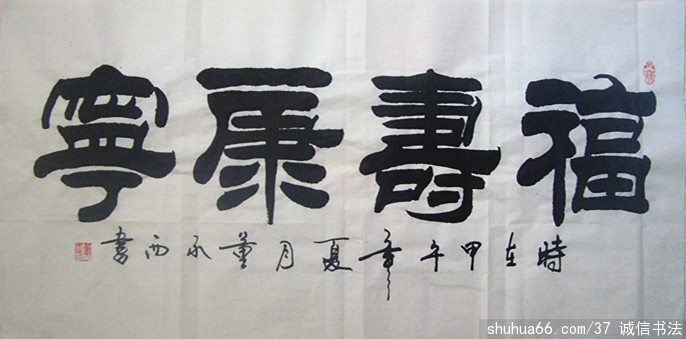 福壽康寧
時在甲午年夏月董永西書
shuhua66.com/37 诚信书法